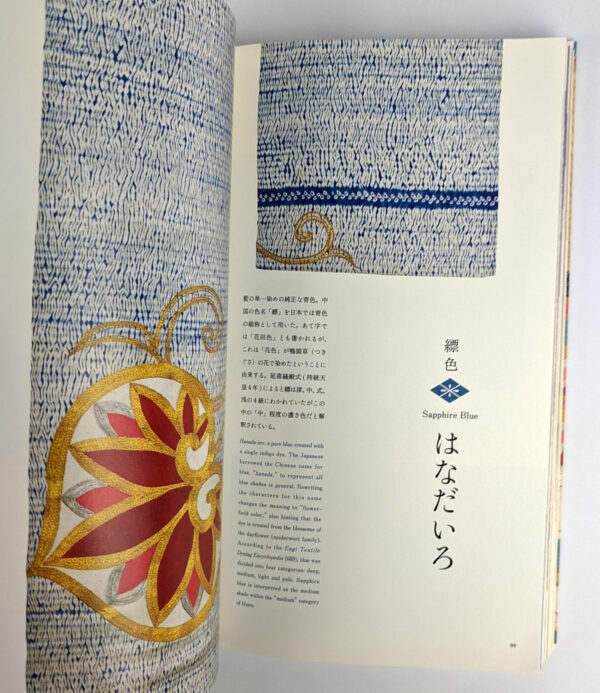 縹色
Sapphire Blue
はなだいろ
藍の単一染めの純正な青色。中
国の色名「縹」を日本では青色
の総称として用いた。あて字で
は「花田色」とも書かれるが、
これは「花色」が鴨頭草（つき
ぐさ）の花で染めたということに
由来する。延喜縫殿式(持統天
皇4年)によると縹は深、中、弐、
浅の4級にわかれていたがこの
中の「中」程度の濃さ色だと解
釈されている。
Hanada-iro: a pure blue created with
a single indigo dye. The Japanese
borrowed the Chinese name for
blue, "hanada," to represent all
blue shades in general. Rewriting
the characters for this name
changes the meaning to "flower-
field color," also hinting that the
dye is created from the blossoms of
the dayflower (spiderwort family).
According to the Engi Textile
Dyeing Encyclopedia (689), blue was
divided into four categories: deep,
medium, light and pale. Sapphire
blue is interpreted as the medium
shade within the "medium" category
of blues.
99